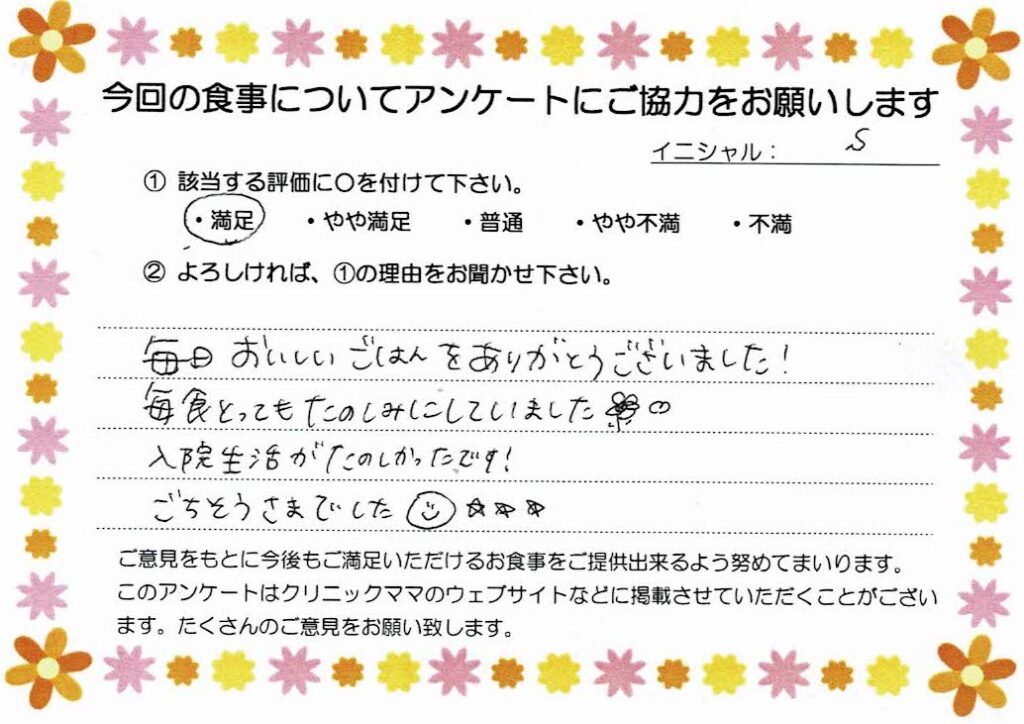 今回の食事についてアンケートにご協力をお願いします
イニシャル： S
① 該当する評価に〇を付けて下さい。
・満足 ・やや満足 ・普通 ・やや不満 ・不満
② よろしければ、①の理由をお聞かせ下さい。
毎日 おいしい ごはん をありがとうございました！
毎食とってもたのしみにしていました
入院生活がたのしかったです！
ごちそうさまでした ☆☆☆
ご意見をもとに今後もご満足いただけるお食事をご提供出来るよう努めてまいります。
このアンケートはクリニックママのウェブサイトなどに掲載させていただくことがござい
ます。たくさんのご意見をお願い致します。